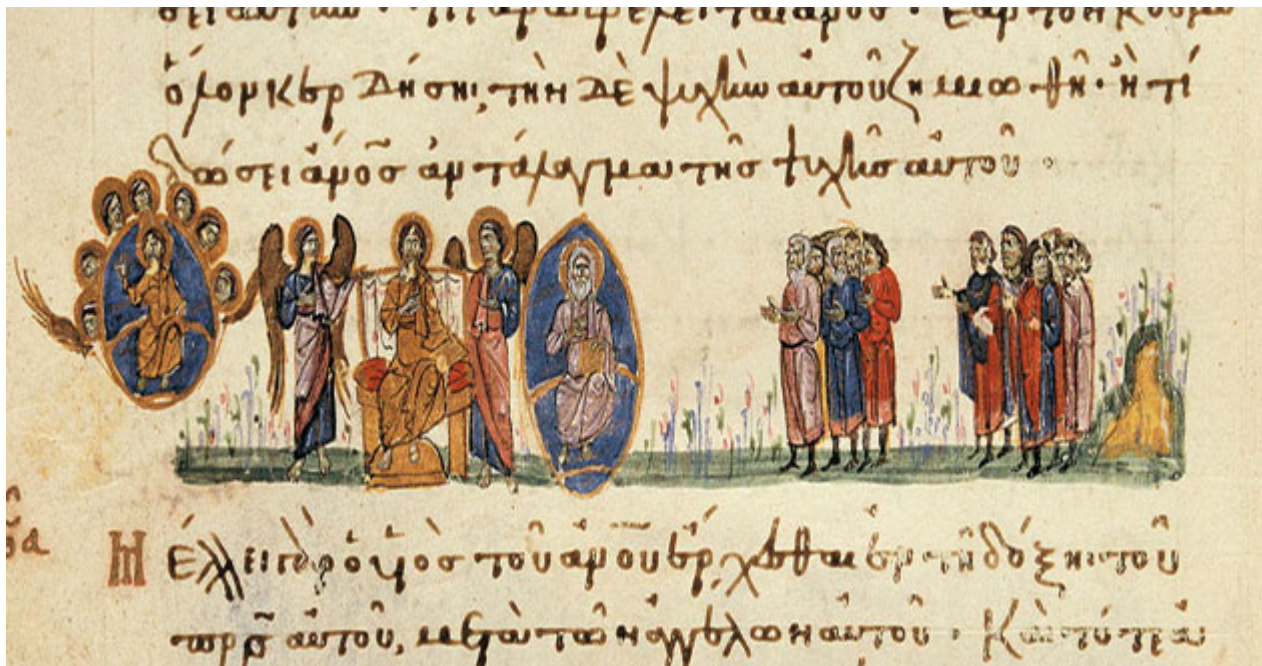 σει αὐτήν · τί γὰρ ὠφελεῖται ἄνος · ἐὰν τὸν κόσμον
ὅλον κερδήσῃ, τὴν δὲ ψυχὴν αὐτοῦ ζημιωθῆ · ἢ τί
δώσει ἄνος ἀντάλαγμα τῆς ψυχῆς αὐτοῦ ·
Μέλλει γὰρ ὁ υἱὸς τοῦ ἀνου ἔρχεσθαι ἐν τῆ δόξη τοῦ
πρς αὐτοῦ, μετὰ τῶν ἀγγέλων αὐτοῦ · Καὶ τότε ἀ